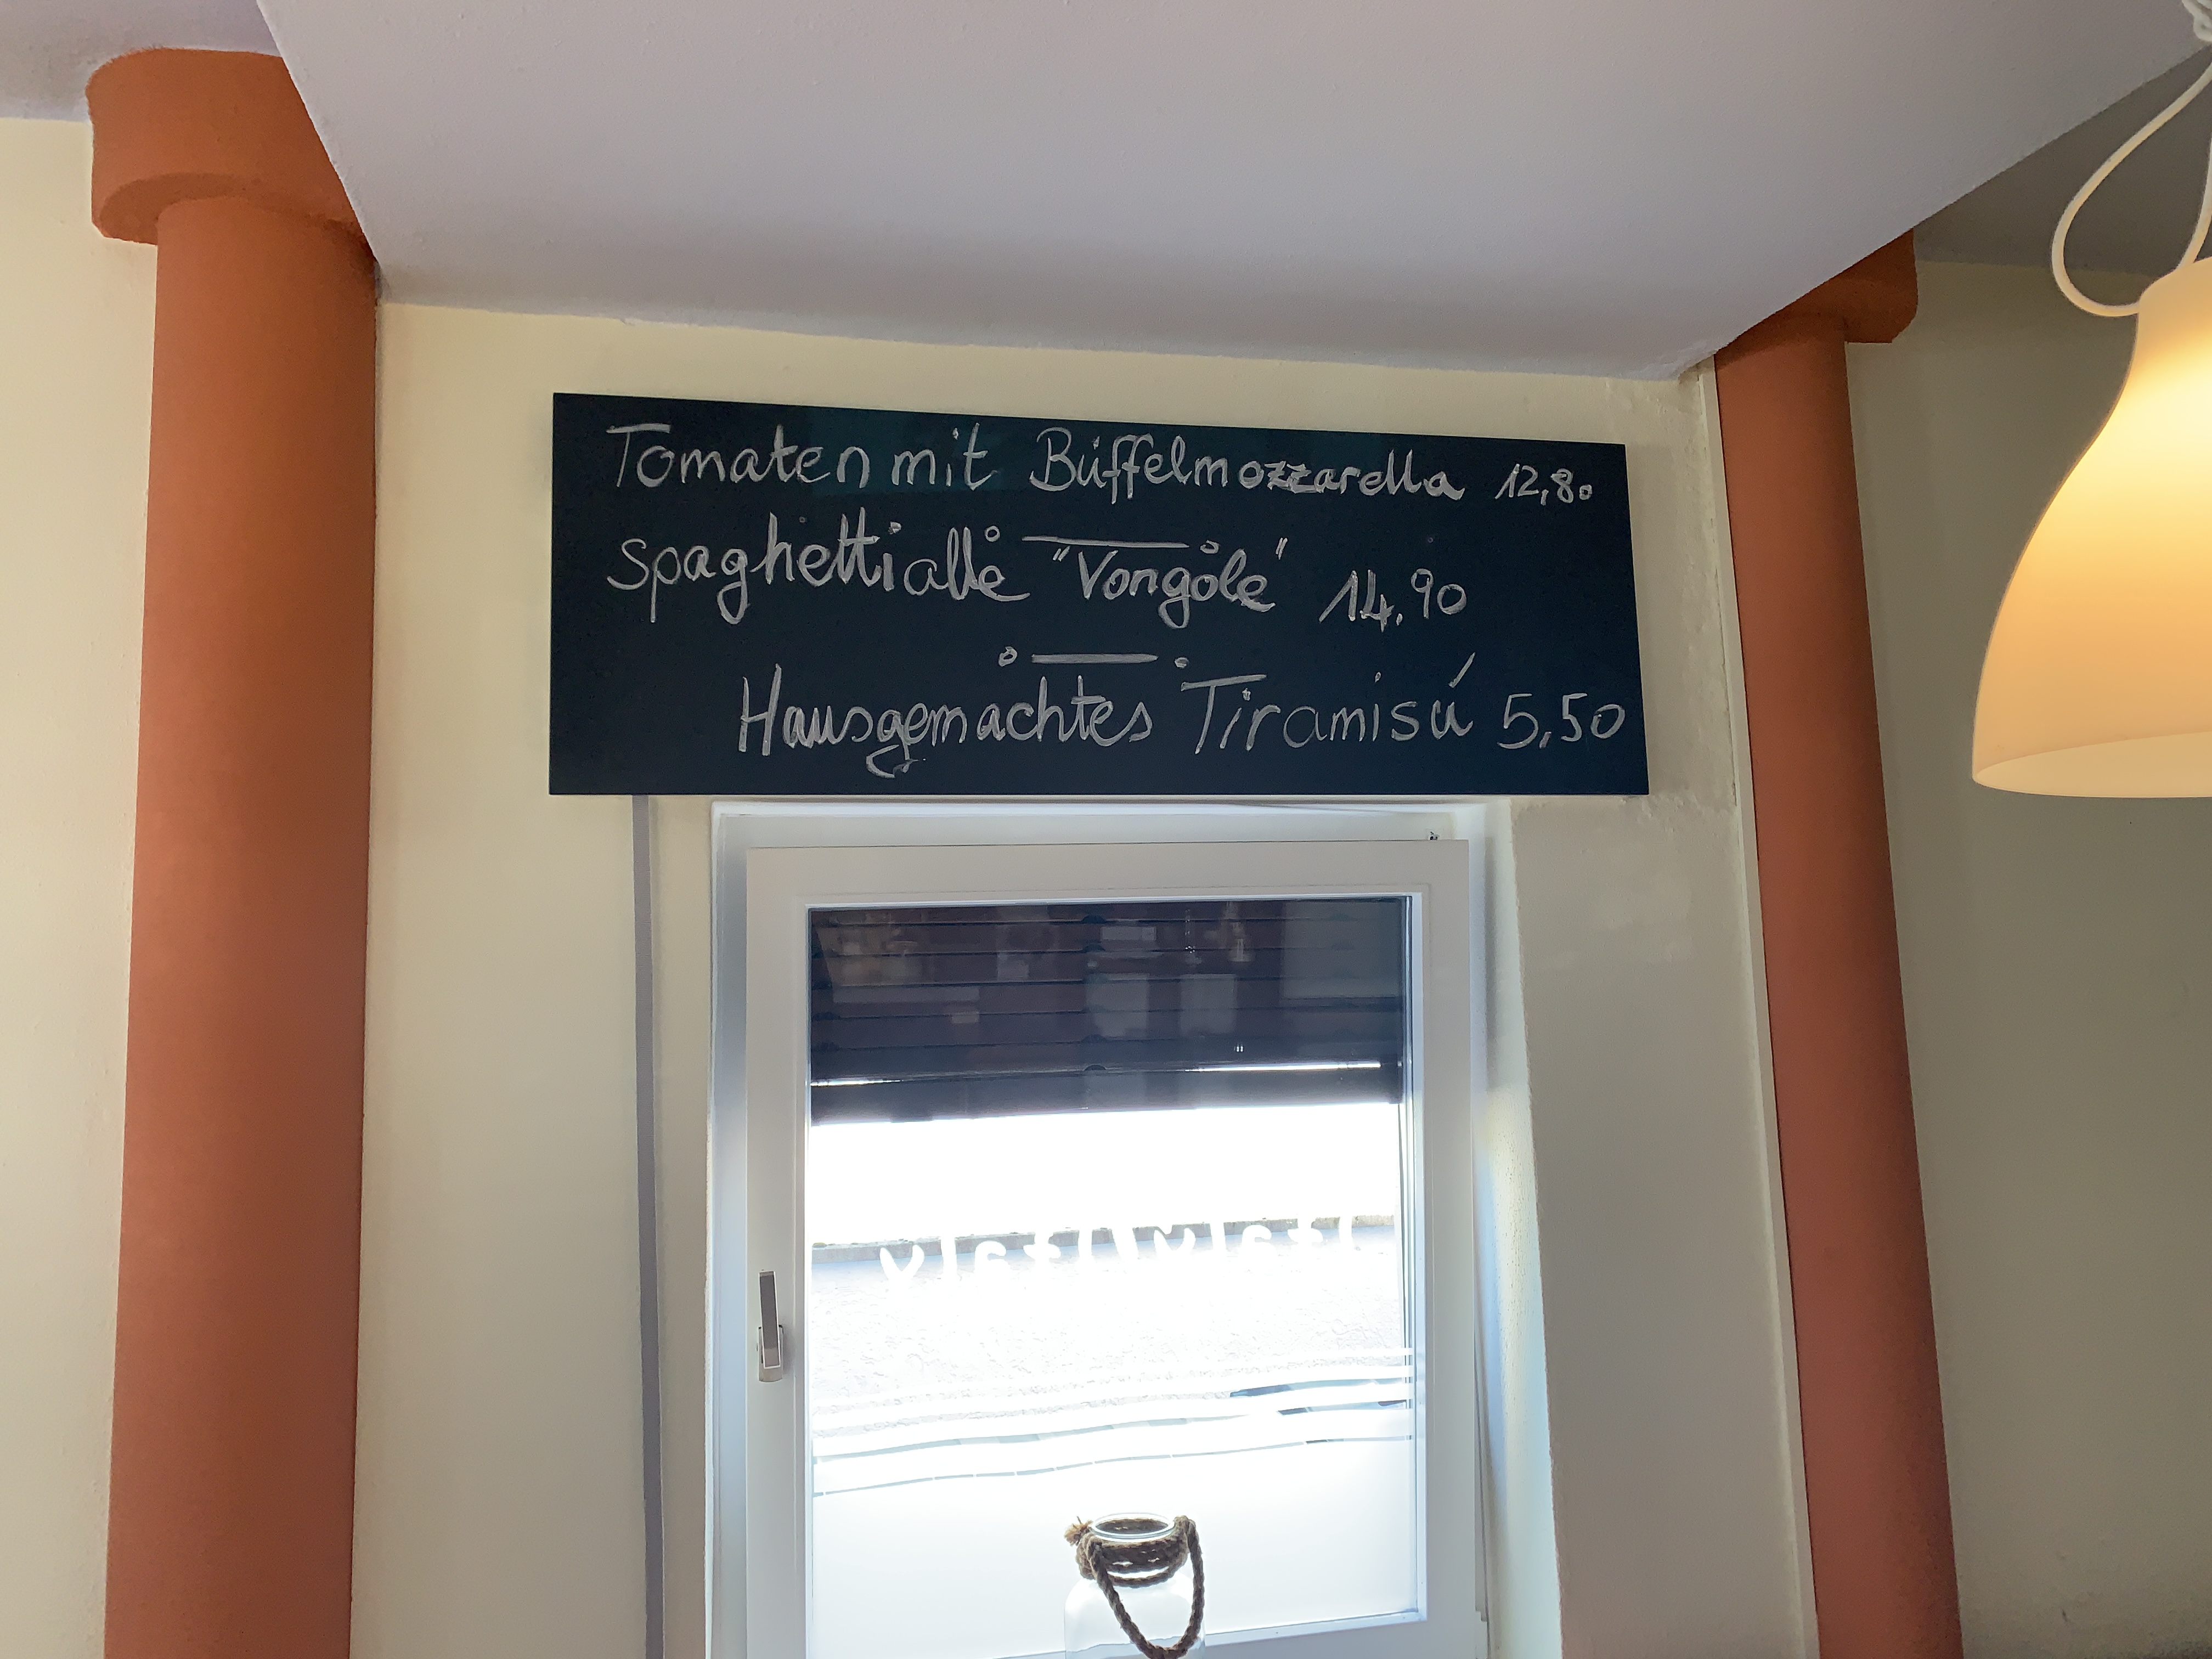 Tomaten mit Büffelmozzarella 12,80
Spaghetti alle "Vongole" 14,90
Hausgemachtes Tiramisú 5,50